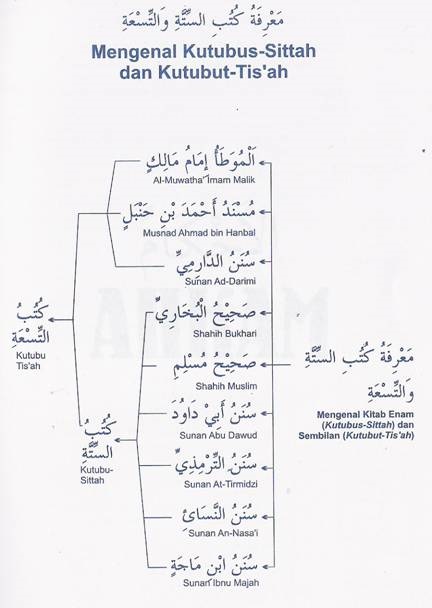 مَعْرِفَةُ كُتُبِ السِّتَّةِ وَالتِّسْعَةِ
Mengenal Kutubus-Sittah
dan Kutubut-Tis'ah
اَلْمُوَطَأُ إِمَامُ مَالِكٍ
Al-Muwatha' Imam Malik
مُسْنَدُ أَحْمَدَ بْنِ حَنْبَلٍ
Musnad Ahmad bin Hanbal
سُنَنُ الدَّارِمِيِّ
Sunan Ad-Darimi
كُتُبُ
التِّسْعَةِ
Kutubu
Tis'ah
صَحِيْحُ الْبُخَارِيِّ
Shahih Bukhari
صَحِيْحُ مُسْلِمِ
Shahih Muslim
سُنَنُ أَبِيْ دَاوُدَ
Sunan Abu Dawud
كُتُبُ
السِّتَّةِ
Kutubu-
Sittah
سُنَنُ التِّرْمِذِيِّ
Sunan At-Tirmidzi
سُنَنُ النَّسَائِ
Sunan An-Nasa'i
سُنَنُ ابْنِ مَاجَةِ
Sunan Ibnu Majah
مَعْرِفَةُ كُتُبِ السِّتَّةِ
وَالتِّسْعَةِ
Mengenal Kitab Enam
(Kutubus-Sittah) dan
Sembilan (Kutubut-Tis'ah)